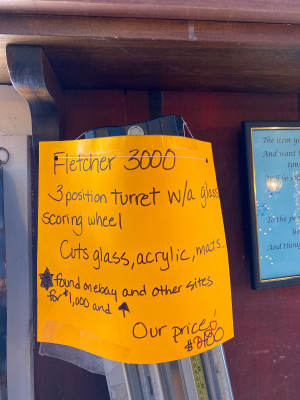 Fletcher 3000
3 position turret w/a glass
scoring wheel
Cuts glass, acrylic, mats
found on ebay and other sites
for $1,000 and ↑
Our price!
The item yo
And want t
To the po
And thoug